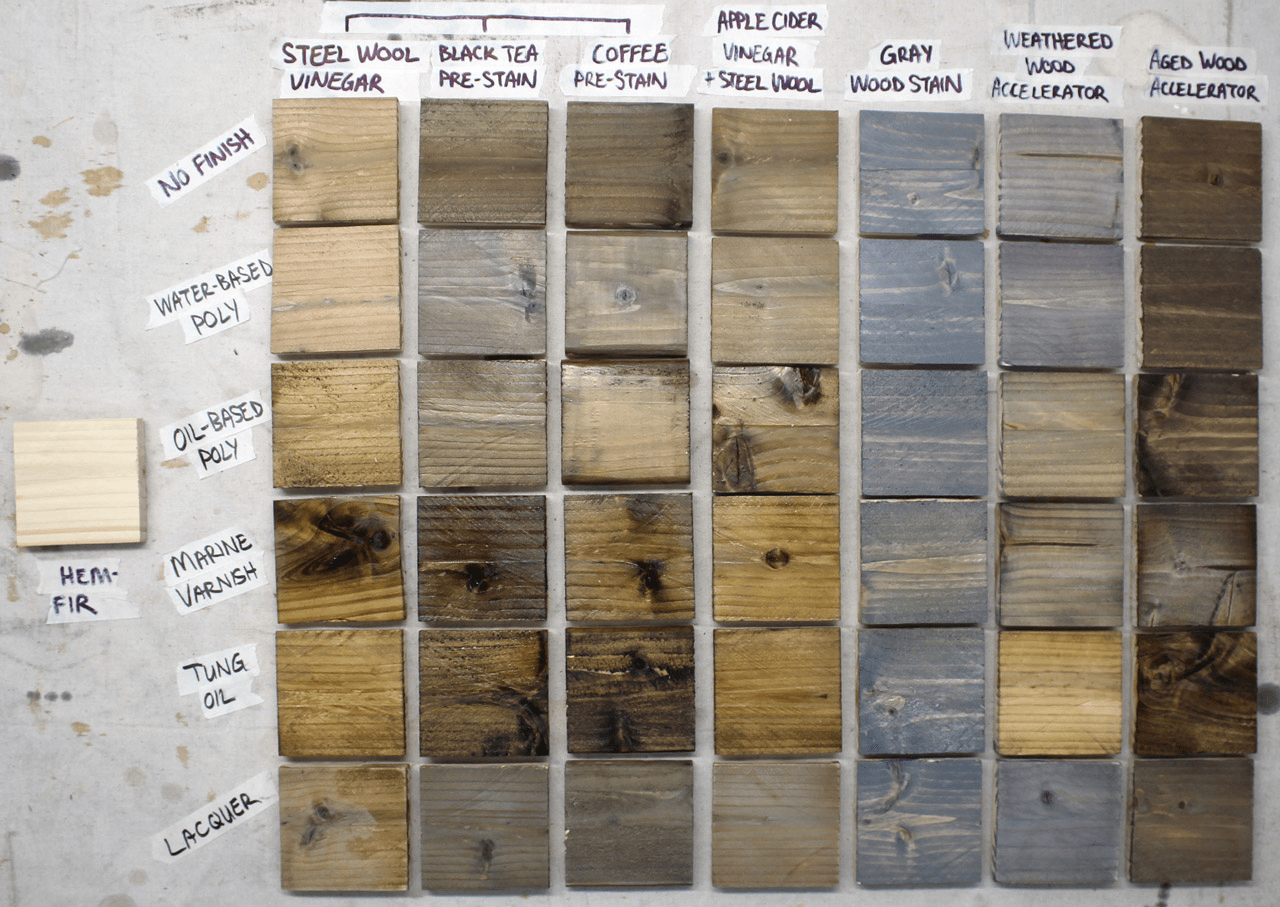 STEEL WOOL
VINEGAR
BLACK TEA
PRE-STAIN
COFFEE
PRE-STAIN
APPLE CIDER
VINEGAR
+ STEEL WOOL
GRAY
WOOD STAIN
WEATHERED
WOOD
ACCELERATOR
AGED WOOD
ACCELERATOR
NO FINISH
WATER-BASED
POLY
OIL-BASED
POLY
MARINE
VARNISH
HEM-
FIR
TUNG
OIL
LACQUER